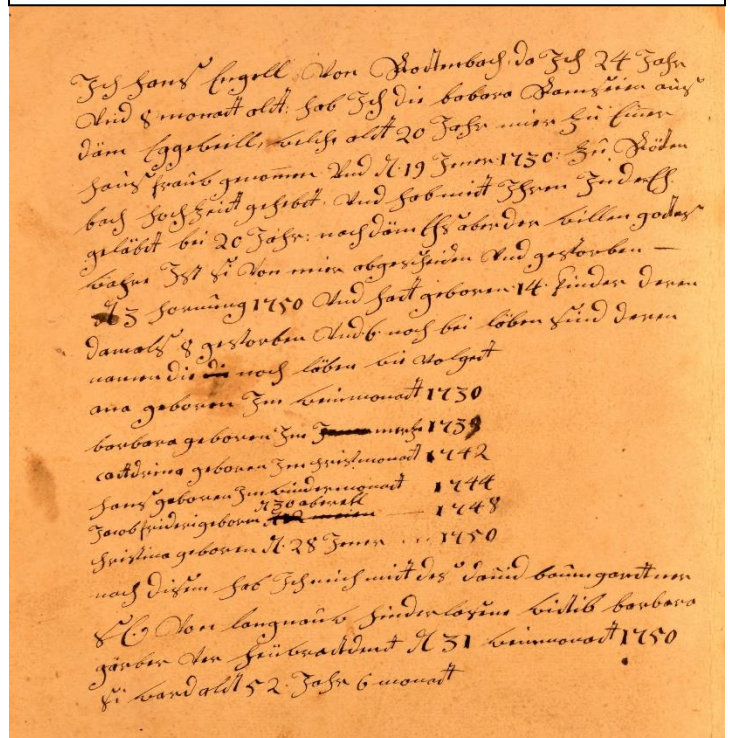 Ich Hans Engell Von Rödtenbach do Ich 24 Jahr
Und 8 monadt aldt: hab Ich die babara Ramseier aus
däm Eggeweill, welche aldt 20 Jahr mier Zu Einer
haus fraub genommen Und d. 19 Jener 1730: Zu Röten
bach hochzeidt gehebdt. Und hab midt Ihren
geläbdt bei 20 Jahr: nach däm Es aber der willen godtes
wahre Ist si Von mier abgescheiden Und gestorben —
d 3 hornung 1750 Und hadt geboren 14 kinder deren
damals 8 gestorben Und 6 noch bei läben sind deren
namen die noch läben wie Volgedt
ana geboren Im weinmonadt 1730
barbara geboren Im mertz 1739
cattdrina geboren Im christmonadt 1742
hans geboren Im windermonadt 1744
d 30 aberell
Jacob frideri geboren 1748
christina geboren d. 28 Jener ... 1750
nach disem hab Ich mich midt des daniel baumgardtner
Von langnauw hinderlasene widtib barbara
gärber Ver heüradtdent d 31 weinmonadt 1750
si ward aldt 52 Jahr 6 monadt